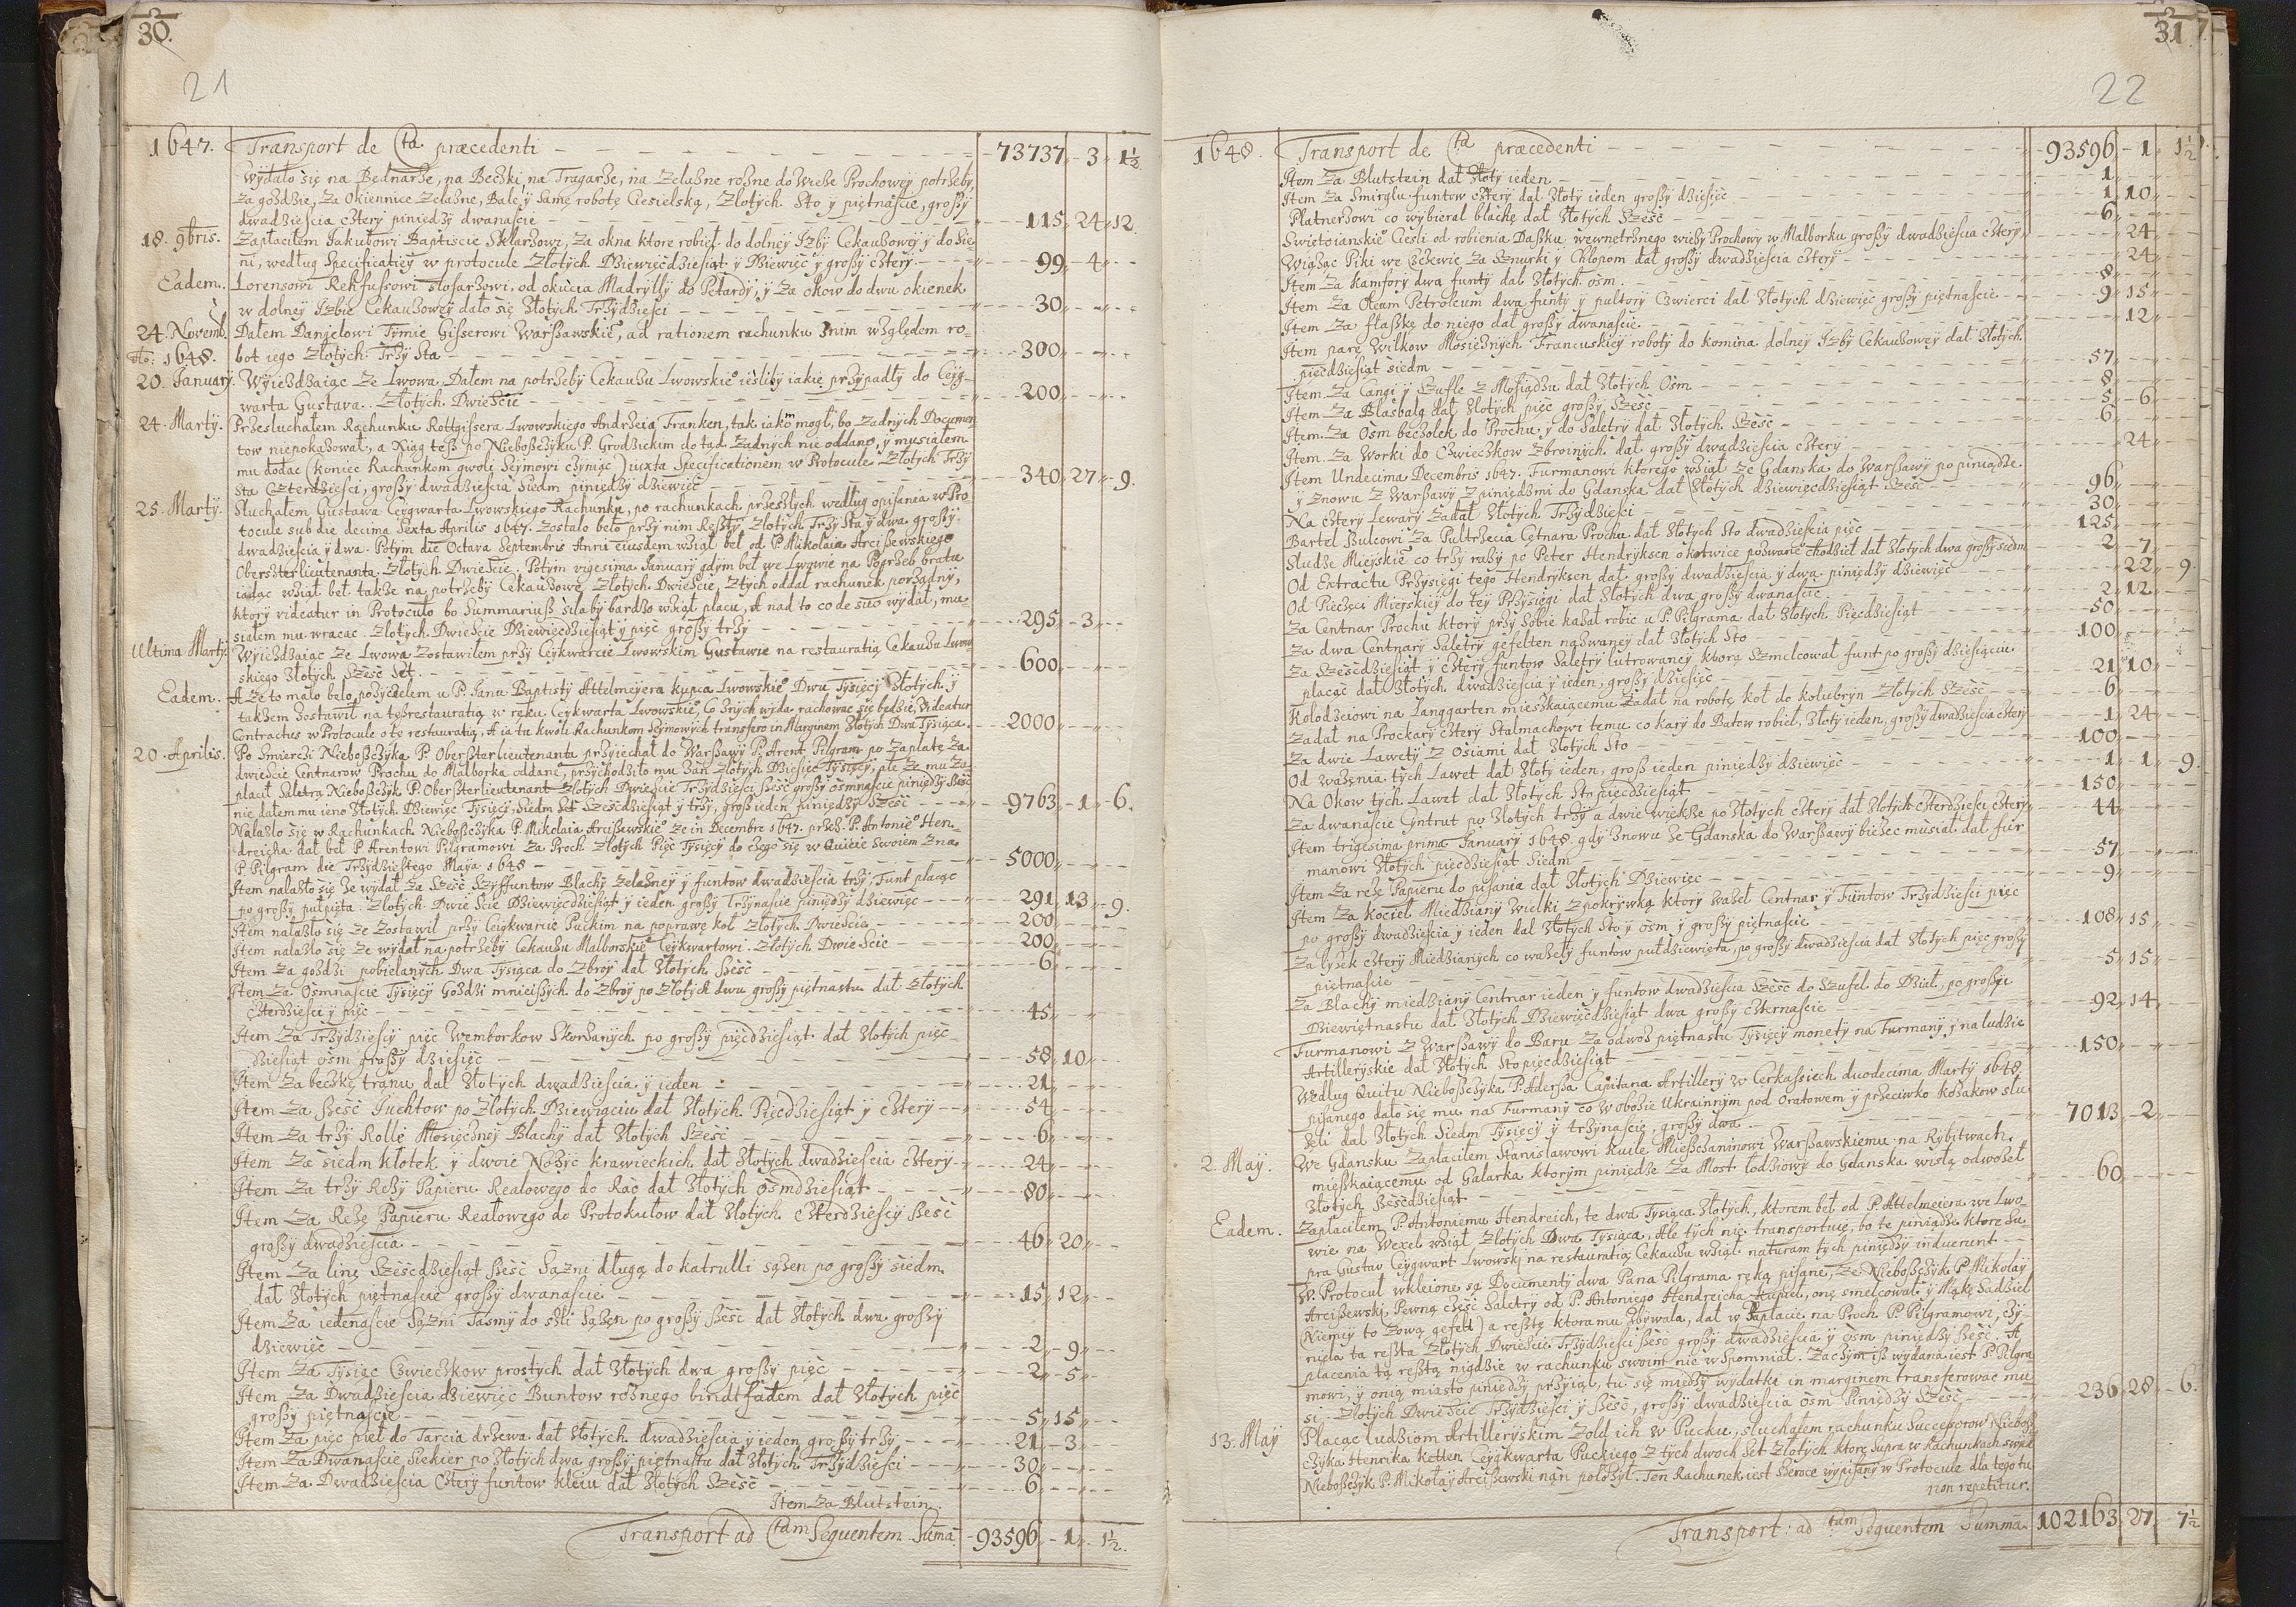 30.
21
1647. Transport de Cta præcedenti 73737 3 1½
Wydało się na Bednarze, na Beczki na Tragarze, na Zelazne rozne do Wieże Prochowey potrzeby,
Za gozdzie, Za Okiennice Zelazne, Bale y Samę robotę Ciesielską, Złotych Sto y piętnascie, groszy
dwadziescia cztery piniędzy dwanascie 115 24 12.
18. 9bris. Zapłaciłem Jakubowi Baptiscie Sklarzowi, Za okna ktore robieł do dolney Izby Cekauzowey y do Sie
ni, według Specificatiey w protocule Złotych Dziewięćdziesiąt y Dziewięć y groszy cztery. 99 4
Eadem. Lorensowi Rehfussowi slosarzowi, od okucia Madrylly do Petardy, y Za okow do dwu okienek
w dolney Izbie Cekauzowey dało się Złotych Trzydziesci 30
24. Novemb. Dałem Danielowi Tymie Gisserowi Warszawskieº, ad rationem rachunku Znim względem ro-
Aº: 1648. bot iego Złotych Trzy Sta 300
20. January. Wyiezdzaiąc Ze Lwowa Dałem na potrzeby Cekauzu Lwowskieº iesliby iakie przypadły do Ceyg-
warta Gustava. Złotych Dwiescie 200
24. Marty. Przesłuchałem Rachunku Rottgissera Lwowskiego Andrzeia Franken, tak iakom mogł, bo Zadnych Documen
tow niepokazował, a Xiąg tesz po Nieboszczyku P. Grodzickim do tąd Zadnych nie oddano, y musiałem
mu dodac (koniec Rachunkom gwoli Seymowi czyniąc) iuxta Specificationem w Protocule Złotych Trzy
Sta Czterdziesci, groszy dwadziescia Siedm piniędzy dziewięć 340 27 9.
25. Marty. Słuchałem Gustawa Ceygwarta Lwowskiego Rachunku, po rachunkach przeszłych według opisania w Pro
tocule sub die decima Sexta Aprilis 1647. Zostało beło przy nim Reszty Złotych Trzy Sta y dwa groszy
dwadziescia y dwa. Potym die Octava Septembris Anni eiusdem wziął beł od P. Mikołaia Arciszewskiego
Oberszterlieutenanta Złotych Dwiescie. Potym vigesima January gdym beł we Lwowie na Pogrzeb brata
iadąc wziął beł także na potrzeby Cekauzowe Złotych Dwiescie, Ztych oddał rachunek porządny,
ktory videatur in Protocuło bo Summariusz siłaby bardzo wziął placu, A nad to co de suo wydał, mu-
siałem mu wracac Złotych Dwiescie Dziewięćdziesiąt y pięć groszy trzy 295 3
Ultima Marty. Wyiezdzaiąc Ze Lwowa Zostawiłem przy Ceykwarcie Lwowskim Gustawie na restauratią Cekauzu Lwow
skiego Złotych Szesc Set. 600
Eadem. A Ze to mało beło, pożyczełem u P. Janu Baptisty Attelmeyera kupca Lwowskieº Dwu Tysięcy Złotych y
takzem Zostawił na tęż restauratią w ręku Ceykwarta Lwowskieº, Co Znych wyda rachowac się będzie, Videatur
Contractus w Protocule o tę restauratią, A ia tu kwoli Rachunkom Seymowych transfero in Marginem Złotych Dwa Tysiąca. 2000
20. Aprilis. Po Smierczi Nieboszczyka P. Oberszterlieutenanta przyiechał do Warszawy P. Arent Pilgram po Zapłatę Za
dwiescie Centnarow Prochu do Malborka oddane, przychodziło mu Zan Złotych Dziesięc Tysięcy, ale Ze mu Za-
płacił Saletrą Nieboszczyk P. Oberszterlieutenant Złotych Dwiescie Trzydziesci szesc groszy osmnascie piniędzy szesc
nie dałem mu ieno Złotych Dziewięc Tysięcy, Siedm Set Szescdziesiąt y trzy, grosz ieden piniędzy Szesc 9763 1 6.
Nalazło się w Rachunkach Nieboszczyka P. Mikołaia Arciszewskieº Ze in Decembre 1647. przez P. Antonieº Hen-
dreicha dał beł P. Arentowi Pilgramowi Za Proch Złotych Pięc Tysięcy do czego się w Quicie Swoiem Zna
P. Pilgram die Trzydziestego Maya 1648 5000
Item nalazło się Ze wydał Za Szesc Szyffuntow Blachy Zelazney y funtow dwadziescia trzy, Funt płacąc
po groszy pułpięta. Złotych Dwiescie Dziewięcdziesiąt y ieden groszy trzynascie piniędzy dziewięc 291 13 9.
Item nalazło się Ze Zostawił przy Ceigkwarcie Puckim na poprawę koł Złotych Dwiescie 200
Item nalazło się Ze wydał na potrzeby Cekauzu Malborskieº Ceykwartowi Złotych Dwiescie 200
Item Za gozdzi pobielanych Dwa Tysiąca do Zbroy dał Złotych szesc 6
Item Za Osmnascie Tysięcy Gozdzi mnieiszych do Zbroy po Złotych dwu groszy piętnastu dał Złotych
Czterdziesci y pięc 45
Item Za Trzydziescy pięc Wemborkow Skorzanych po groszy pięcdziesiąt dał Złotych pięc
dziesiąt osm groszy dziesięc 58 10
Item Za beczkę tranu dał Złotych dwadziescia y ieden 21
Item Za szesc Juchtow po Złotych Dziewiąciu dał Złotych Pięcdziesiąt y cztery 54
Item Za trzy Rolle Mosięzney Blachy dał Złotych Szesc 6
Item Za siedm kłotek y dwoie Nozyc krawieckich dał Złotych dwadziescia cztery 24
Item Za trzy Rezy Papieru Reałowego do Rac dał Złotych osmdziesiąt 80
Item Za Rezę Papieru Reałowego do Protokułow dał Złotych Czterdziescy szesc
groszy dwadziescia 46 20
Item Za linę Szescdziesiąt szesc Sązni długą do katrulli sązen po groszy siedm
dał Złotych piętnascie groszy dwanascie 15 12
Item Za iedenascie Sązni Tasmy do szli Sązen po groszy szesc dał Złotych dwa groszy
dziewięc 2 9
Item Za Tysiąc Cwieczkow prostych dał Złotych dwa groszy pięc 2 5
Item Za Dwadziescia dziewięc Buntow roznego bindtfadem dał Złotych pięc
groszy piętnascie 5 15
Item Za pięc pieł do Tarcia drzewa dał Złotych dwadziescia y ieden groszy trzy 21 3
Item Za Dwanascie Siekier po Złotych dwa groszy piętnastu dał Złotych Trzydziesci 30
Item Za Dwadziescia Cztery funtow kleiu dał Złotych Szesc 6
Item Za Blutstein.
Transport ad Ctam Sequentem Suma 93596 1 1½.
31.
22
1648. Transport de Cta præcedenti 93596 1 1½
Item Za Blutstein dał Złoty ieden 1
Item Za Smirglu funtow cztery dał Złoty ieden groszy dziesięc 1 10
Platnerzowi co wybierał blachę dał Złotych Szesc 6
Swietoianskieº Ciesli od robienia Daszku wewnetrznego wieży Prochowy w Malborku groszy dwadziescia cztery 24
Wiążąc Piki we Czczewie Za Sznurki y Chłopom dał groszy dwadziescia cztery 24
Item Za kamfory dwa funty dał Złotych osm 8
Item Za Oleum Petroleum dwa funty y pultory Czwierci dał Złotych dziewięc groszy piętnascie 9 15
Item Za flaszkę do niego dał groszy dwanascie 12
Item parę Wilkow Mosieznych Francuskiey roboty do komina dolney Izby Cekauzowey dał Złotych
pięcdziesiąt siedm 57
Item Za Cangi y Szufle z Mosiądzu dał Złotych Osm 8
Item Za Blasbalg dał Złotych pięc groszy Szesc 5 6
Item Za Osm beczolek do Prochu y do Saletry dał Złotych Szesc 6
Item Za Worki do Cwieczkow Zbroinych dał groszy dwadziescia cztery 24
Item Undecima Decembris 1647. Furmanowi ktorego wziął Ze Gdanska do Warszawy po piniądze
y Znowu Z Warszawy Z piniędzmi do Gdanska dał Złotych dziewięcdziesiąt Szesc 96
Na cztery Lewary Zadał Złotych Trzydziesci 30
Bartel Szulcowi Za Pultrzecia Cetnara Prochu dał Złotych Sto dwadziescia pięc 125
Sludze Mieyskieº co trzy razy po Peter Hendryksen o kotwice pozwane chodzieł dał Złotych dwa groszy siedm 2 7
Od Extractu Przysięgi tego Hendryksen dał groszy dwadziescia y dwa piniędzy dziewięc 22 9.
Od Pieczęci Mieyskiey do tey Przysięgi dał Złotych dwa groszy dwanascie 2 12
Za Centnar Prochu ktory przy Sobie kazał robic u P. Pilgrama dał Złotych Pięcdziesiąt 50
Za dwa Centnary Saletry gefelten nazwaney dał Złotych Sto 100
Za Szescdziesiąt y cztery funtow Saletry lutrowaney ktorą Szmelcował funt po groszy dziesiąciu
płacąc dał Złotych dwadziescia y ieden, groszy dziesięc 21 10
Kołodzieiowi na Langgarten mieszkaiącemu Zadał na robotę koł do kolubryn Złotych Szesc 6
Zadał na Prockary cztery Stalmachowi temu co kary do Batow robieł, Złoty ieden, groszy dwadziescia cztery 1 24
Za dwie Lawety z Osiami dał Złotych Sto 100
Od wazenia tych Lawet dał Złoty ieden, grosz ieden piniędzy dziewięc 1 1 9.
Na Okow tych Lawet dał Złotych Sto pięcdziesiąt 150
Za dwanascie Cyntrut po Złotych trzy a dwie większe po Złotych cztery dał Złotych czterdziesci cztery 44
Item trigesima prima January 1648. gdy Znowu Ze Gdanska do Warszawy biezec musiał dał fur
manowi Złotych pięcdziesiąt Siedm 57
Item Za rezę Papieru do pisania dał Złotych Dziewięc 9
Item Za kocieł Miedziany Wielki Z pokrywką ktory wazeł Centnar y Funtow Trzydziesci pięc
po groszy dwadziescia y ieden dał Złotych Sto y osm y groszy piętnascie 108 15
Za łyzek cztery Miedzianych co wazeły funtow pułdziewięta, po groszy dwadziescia dał Złotych pięc groszy
piętnascie 5 15
Za Blachy miedziany Centnar ieden y funtow dwadziescia Szesc do Szufel do Dział, po groszy
Dziewiętnastu dał Złotych Dziewięcdziesiąt dwa groszy czternascie 92 14
Furmanowi Z Warszawy do Baru Za odwoz piętnastu Tysięcy monety na Furmany y na ludzie
Artilleryskie dał Złotych Stopięcdziesiąt 150
Według Quitu Nieboszczyka P. Aderssa Capitana Artillery w Cerkassiech duodecima Marty 1648.
pisanego dało się mu na Furmany co w obozie Ukrainnym pod Oratowem y przeciwko kozakow słu
żeli dał Złotych Siedm Tysięcy y trzynascie, groszy dwa 7013 2
2. May. We Gdansku Zapłaciłem Stanislawowi Kuile Mieszczaninowi Warszawskiemu na Rybitwach
mieszkaiącemu od Galarka ktorym piniędze Za Most łodziowy do Gdanska wisłą odwozeł
Złotych szescdziesiąt 60
Eadem. Zapłaciłem P. Antoniemu Hendreich, te dwa Tysiąca Złotych, ktorem beł od P. Attelmeiera we Lwo
wie na Wexel wziął Złotych Dwa Tysiąca, Ale tych nie transportuię, bo te piniądze ktore Su-
pra Gustav Ceygwart Lwowski na restauratią Cekauzu wziął naturam tych piniędzy induerunt
W Protocul wkleione są Documenty dwa Pana Pilgrama ręką pisane, Ze Nieboszczyk P. Mikołay
Arciszewski, Pewną częsc Saletry od P. Antoniego Hendreicha kupieł, onę smelcował y Mąką Sadził
(Niemcy to Zową gefelt) a resztę ktora mu Zbywała, dał w Zapłacie na Proch P. Pilgramowi, czy-
nieła ta reszta Złotych Dwiescie Trzydziesci szesc groszy dwadziescia y osm piniędzy szesc. A
płacenia tą resztą nigdzie w rachunku swoim nie wspomniał. Zaczym isz wydana iest P. Pilgra
mowi, y onią miasto piniędzy przyiął, tu się między wydatki in marginem transferowac mu
si. Złotych Dwiescie Trzydziesci y szesc, groszy dwadziescia osm Piniędzy Szesc 236 28 6.
13. May Płacąc ludziom Artilleryskim Zołd ich w Pucku, słuchałem rachunku Successorow Niebosz
czyka Henrika Ketten Ceygkwarta Puckiego Z tych dwoch Set Złotych ktore supra w Rachunkach swych
Nieboszczyk P. Mikołay Arciszewski nąn położył. Ten Rachunek iest szeroce wypisany w Protocule dla tego tu
non repetitur.
Transport ad Ctam Sequentem Summa 102163 27 7½